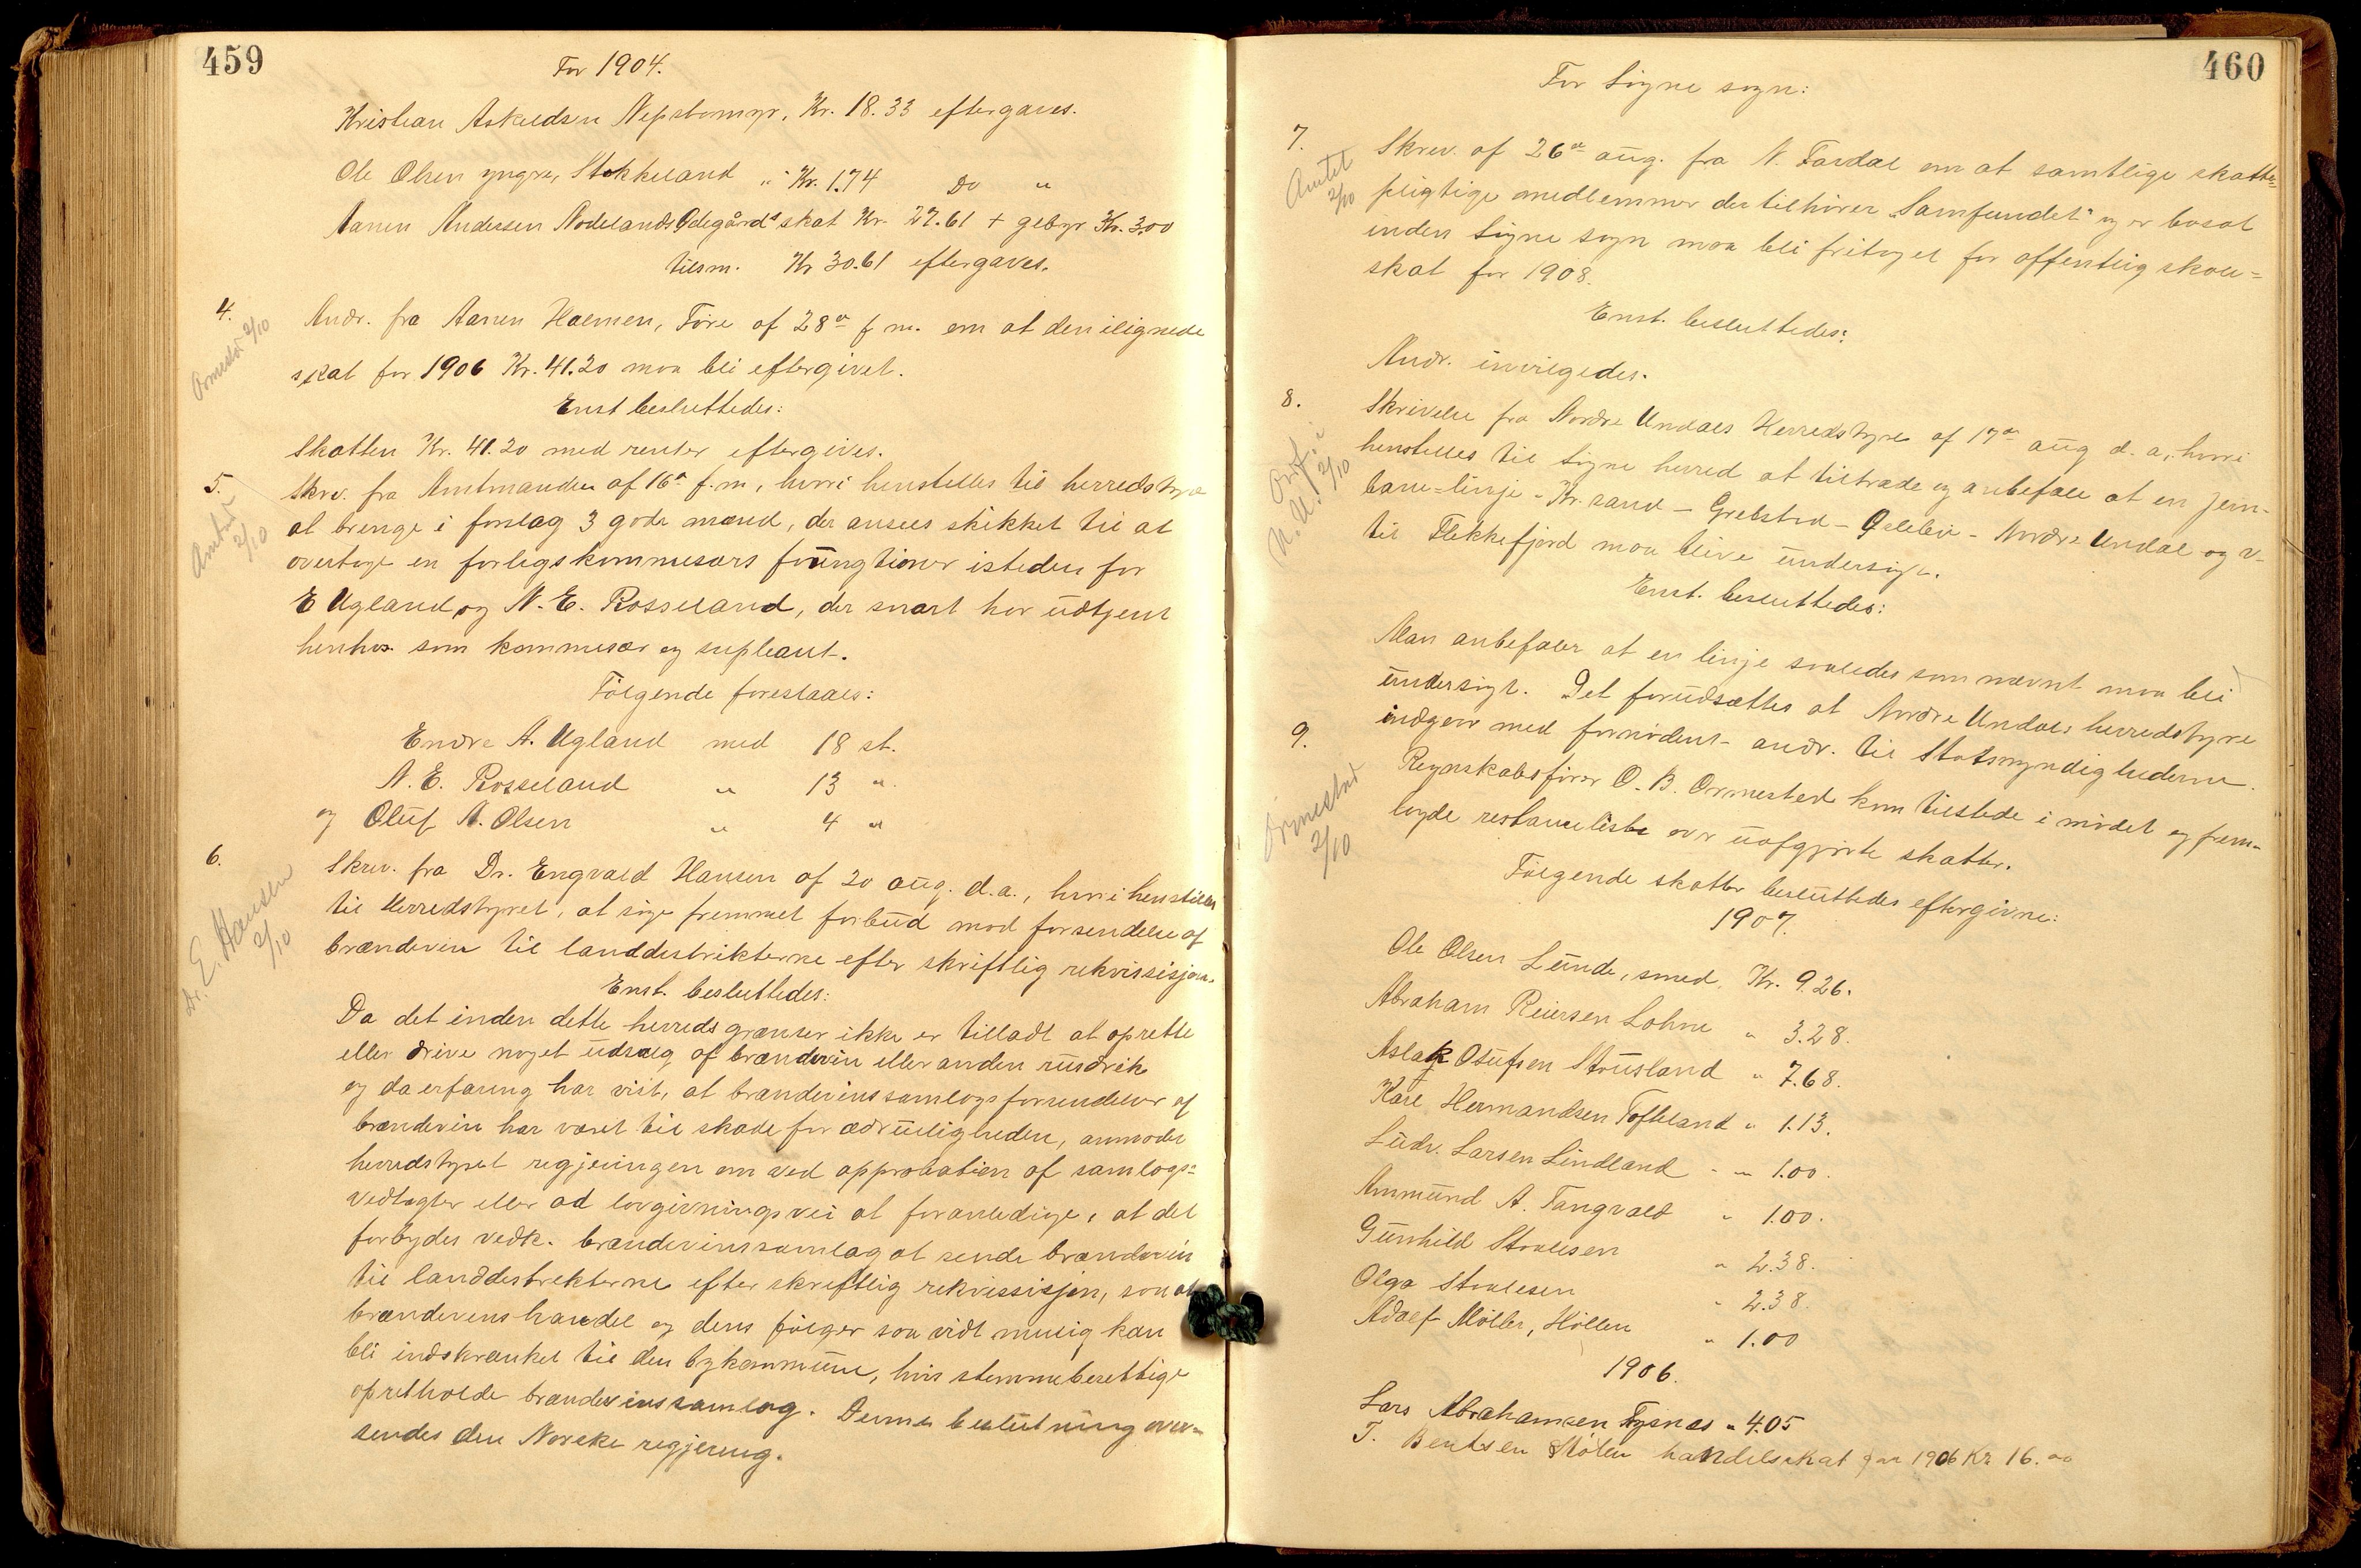 459
For 1904.
Kristian Askildsen Nepstomyr, Kr. 18.33 eftergaves.
Ole Olsen yngre, Stokkeland " Kr. 1.74 Do "
Aanen Andersen Nodelands Ødegård's skat Kr. 27.61 + gebyr Kr. 3.00
tilsm. Kr 30.61 eftergaves.
4. Andr. fra Aanen Holmen, Føre af 28de f. m. om at den ilignede
skat for 1906 Kr. 41.20 maa bli eftergivet.
Ormestad 2/10
Enst besluttedes:
Skatten Kr. 41.20 med renter eftergives.
5. Skr. fra Amtmanden af 16de f.m, hvori henstilles til herredstyre
at bringe i forslag 3 gode mænd, der ansees skikket til at
Amtet 2/10
overtage en forligskommisærs foungtioner isteden for
E Ugland og N. E. Rosseland, der snart har udtjent
henhv. som kommisær og supleant.
Følgende foreslaaes:
Endre A. Ugland med 18 st.
N. E. Rosseland " 13 "
og Oluf A. Olsen " 4 "
6. Skriv. fra Dr. Engvald Hansen af 20 aug. d.a., hvori henstilles
til Herredstyret, at søge fremmet forbud mod forsendelse af
Dr. E. Hansen 2/10
brændevin til landdistrikterne efter skriftlig rekvissisjon.
Enst. besluttedes:
Da det inden dette herreds grænser ikke er tilladt at oprette
eller drive noget udsalg af brændevin eller anden rusdrik
og da erfaring har vist, at brændevinssamlags forsendelser af
brændevin har været til skade for ædrueligheden, anmoder
herredstyret regjeringen om ved approbation af samlags=
vedtægter eller ad lovgivningsvei at foranledige, at det
forbydes vedk. brændevinssamlag at sende brændevin
til landdistrikterne efter skriftlig rekvissisjon, saa at
brændevinshandel og dens følger saa vidt mulig kan
bli indskrænket til den bykommune, hvis stemmeberettige
opretholde brændevinssamlag. Denne beslutning over=
sendes den Norske regjering.
460
For Søgne sogn:
7. Skriv. af 26de aug. fra N. Tardal om at samtlige skatte=
pligtige medlemmer der tilhører "Samfundet" og er bosat
Amtet 2/10
inden Søgne sogn maa bli fritaget for offentlig skole=
skat for 1908.
Enst. besluttedes:
Andr. invilgedes.
8. Skrivelse fra Nordre Undals Herredstyre af 17de aug d. a., hvori
henstilles til Søgne herred at tiltræde og anbefale at en jern-
N. U. 2/10
bane=linje - Kr.sand - Grebstad - Øslebø - Nordre Undal og v-
til Flekkefjord maa blive undersøgt.
Enst. besluttedes:
Man anbefaler at en linje saaledes som nævnt maa bli
undersøgt. Det forudsættes at Nordre Undals herredstyre
indgaar med fornøden andr. til Statsmyndighederne.
9. Regnskabsfører O. B. Ormestad kom tilstede i mødet og frem-
lagde restanceliste over uafgjorte skatter.
Ormestad 2/10
Følgende skatter besluttedes eftergivne:
1907.
Ole Olsen Lunde, smed, Kr. 9.26.
Abraham Reiersen Lohne " 3.28.
Aslak Olufsen Stousland " 7.68.
Karl Hermandsen Tofteland " 1.13.
Ludv. Larsen Lindland " 1.00.
Ammund A. Tangvald " 1.00.
Gunhild Staalesen " 2.38.
Olga Staalesen " 2.38.
Adolf Møller, Høllen " 1.00
1906.
Lars Abrahamsen Tysnes " 4.05
T. Bentsen Stølen handelsskat for 1906 Kr. 16.00